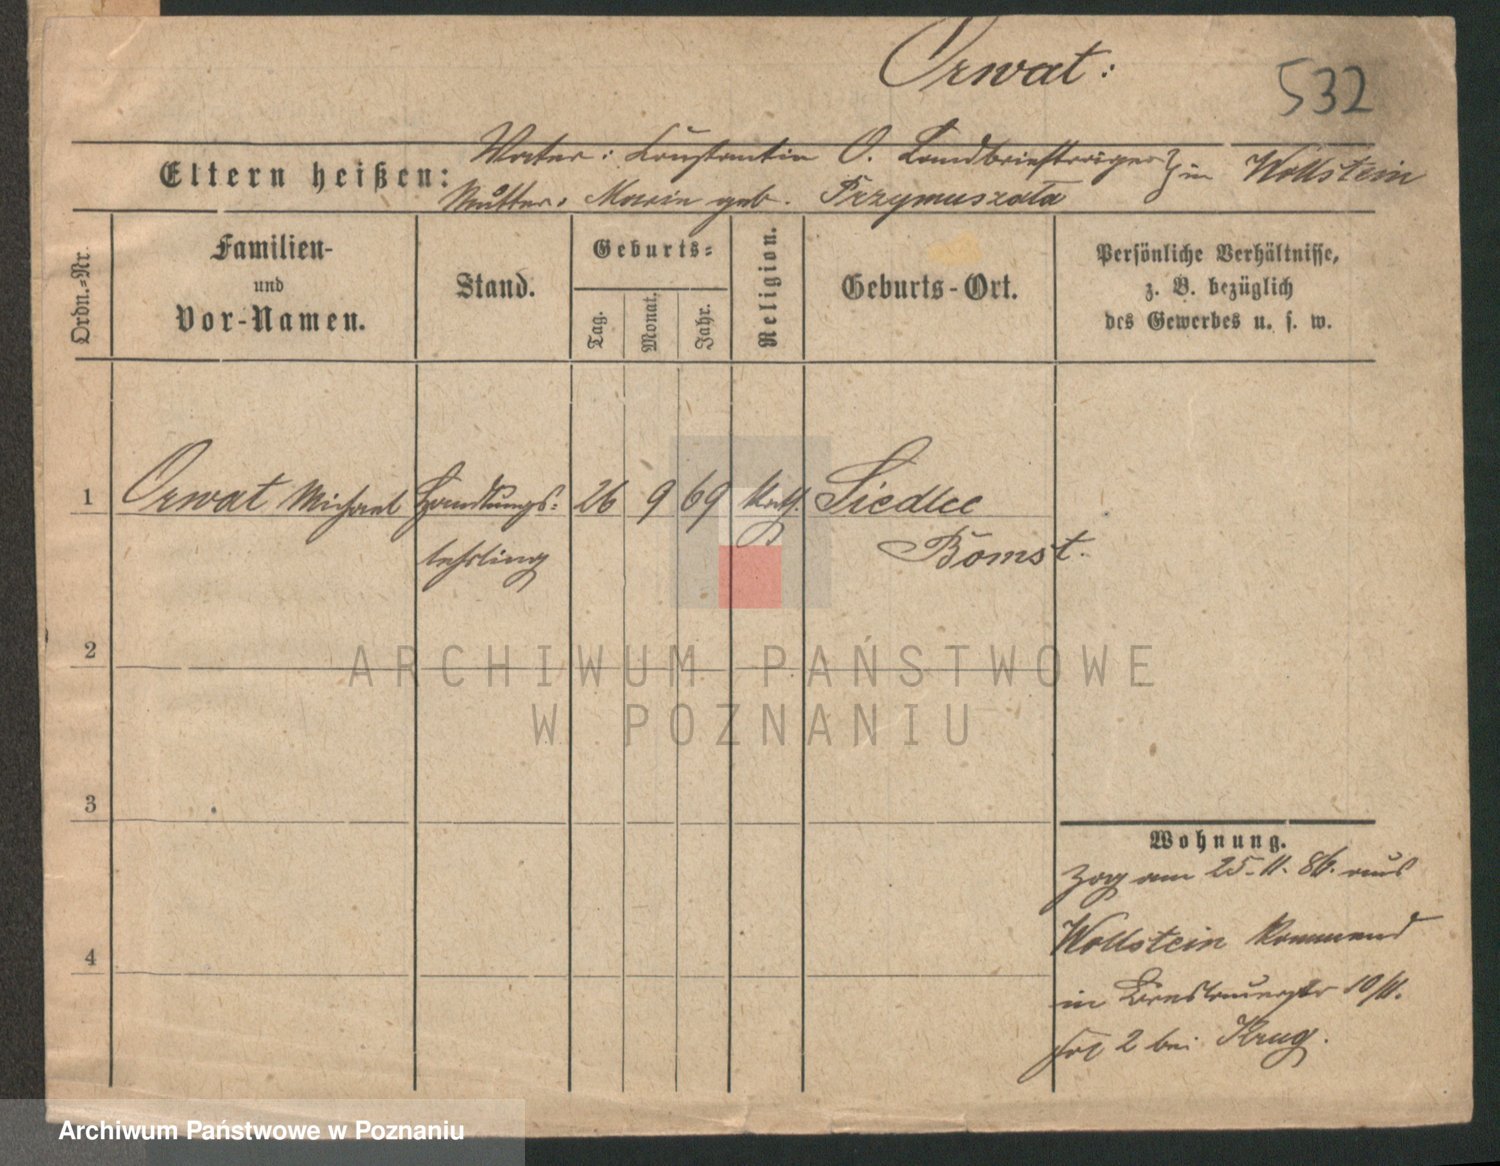 Orwat:
532
Eltern heißen:
Vater: Constantin O. Landbriefträger
Mutter: Marie geb. Przymuszała
in Wollstein
Ordn.-Nr.
Familien-
und
Vor-Namen.
Stand.
Geburts-
Tag.
Monat.
Jahr.
Religion.
Geburts-Ort.
Persönliche Verhältnisse,
z. B. bezüglich
des Gewerbes u. s. w.
1 Orwat Michael Handlungs- 26 9 69 kath. Siedlec
lehrling Bomst.
2
ARCHIWUM PAŃSTWOWE
W POZNANIU
3
Wohnung.
Zog am 25.11.86. aus
Wollstein kommend
4
in 10/11.
2 bei Krug.
Archiwum Państwowe w Poznaniu